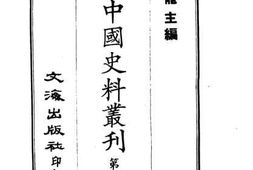 主編
中國史料叢刊第
文海出版社印